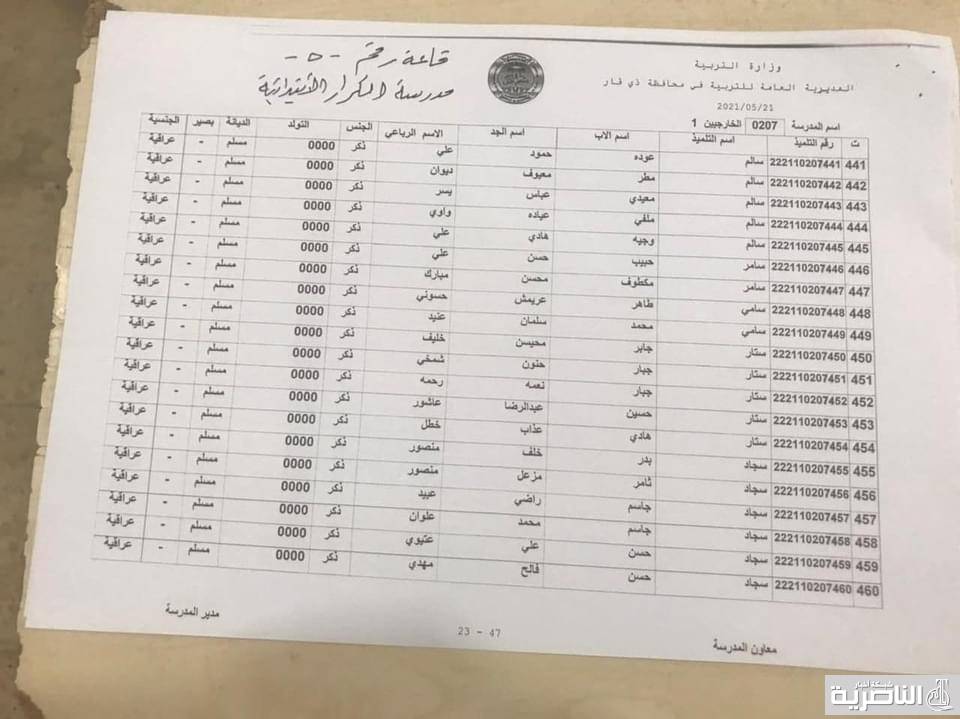 قاعة رقم - ٥ -
مدرسة الكرار الأبتدائية
وزارة التربية
المديرية العامة للتربية في محافظة ذي قار
2021/05/21
اسم المدرسة 0207 الخارجيين 1
ت رقم التلميذ اسم التلميذ اسم الاب اسم الجد الاسم الرباعي الجنس التولد الديانة بصير الجنسية
441 222110207441 سالم عوده حمود علي ذكر 0000 مسلم - عراقية
442 222110207442 سالم مطر معيوف ديوان ذكر 0000 مسلم - عراقية
443 222110207443 سالم معيدي عباس يسر ذكر 0000 مسلم - عراقية
444 222110207444 سالم ملفي عياده واوي ذكر 0000 مسلم - عراقية
445 222110207445 سالم وجيه هادي علي ذكر 0000 مسلم - عراقية
446 222110207446 سامر حبيب حسن علي ذكر 0000 مسلم - عراقية
447 222110207447 سامر مكطوف محسن مبارك ذكر 0000 مسلم - عراقية
448 222110207448 سامي طاهر عريمش حسوني ذكر 0000 مسلم - عراقية
449 222110207449 سامي محمد سلمان عنيد ذكر 0000 مسلم - عراقية
450 222110207450 ستار جابر محيسن خليف ذكر 0000 مسلم - عراقية
451 222110207451 ستار جبار حنون شمخي ذكر 0000 مسلم - عراقية
452 222110207452 ستار جبار نعمه رحمه ذكر 0000 مسلم - عراقية
453 222110207453 ستار حسين عبدالرضا عاشور ذكر 0000 مسلم - عراقية
454 222110207454 ستار هادي عذاب خطل ذكر 0000 مسلم - عراقية
455 222110207455 سجاد بدر خلف منصور ذكر 0000 مسلم - عراقية
456 222110207456 سجاد ثامر مزعل منصور ذكر 0000 مسلم - عراقية
457 222110207457 سجاد جاسم راضي عبيد ذكر 0000 مسلم - عراقية
458 222110207458 سجاد جاسم محمد علوان ذكر 0000 مسلم - عراقية
459 222110207459 سجاد حسن علي عتيوي ذكر 0000 مسلم - عراقية
460 222110207460 سجاد حسن فالح مهدي ذكر 0000 مسلم - عراقية
معاون المدرسة
مدير المدرسة
23 - 47
شبكة أخبار
الناصرية